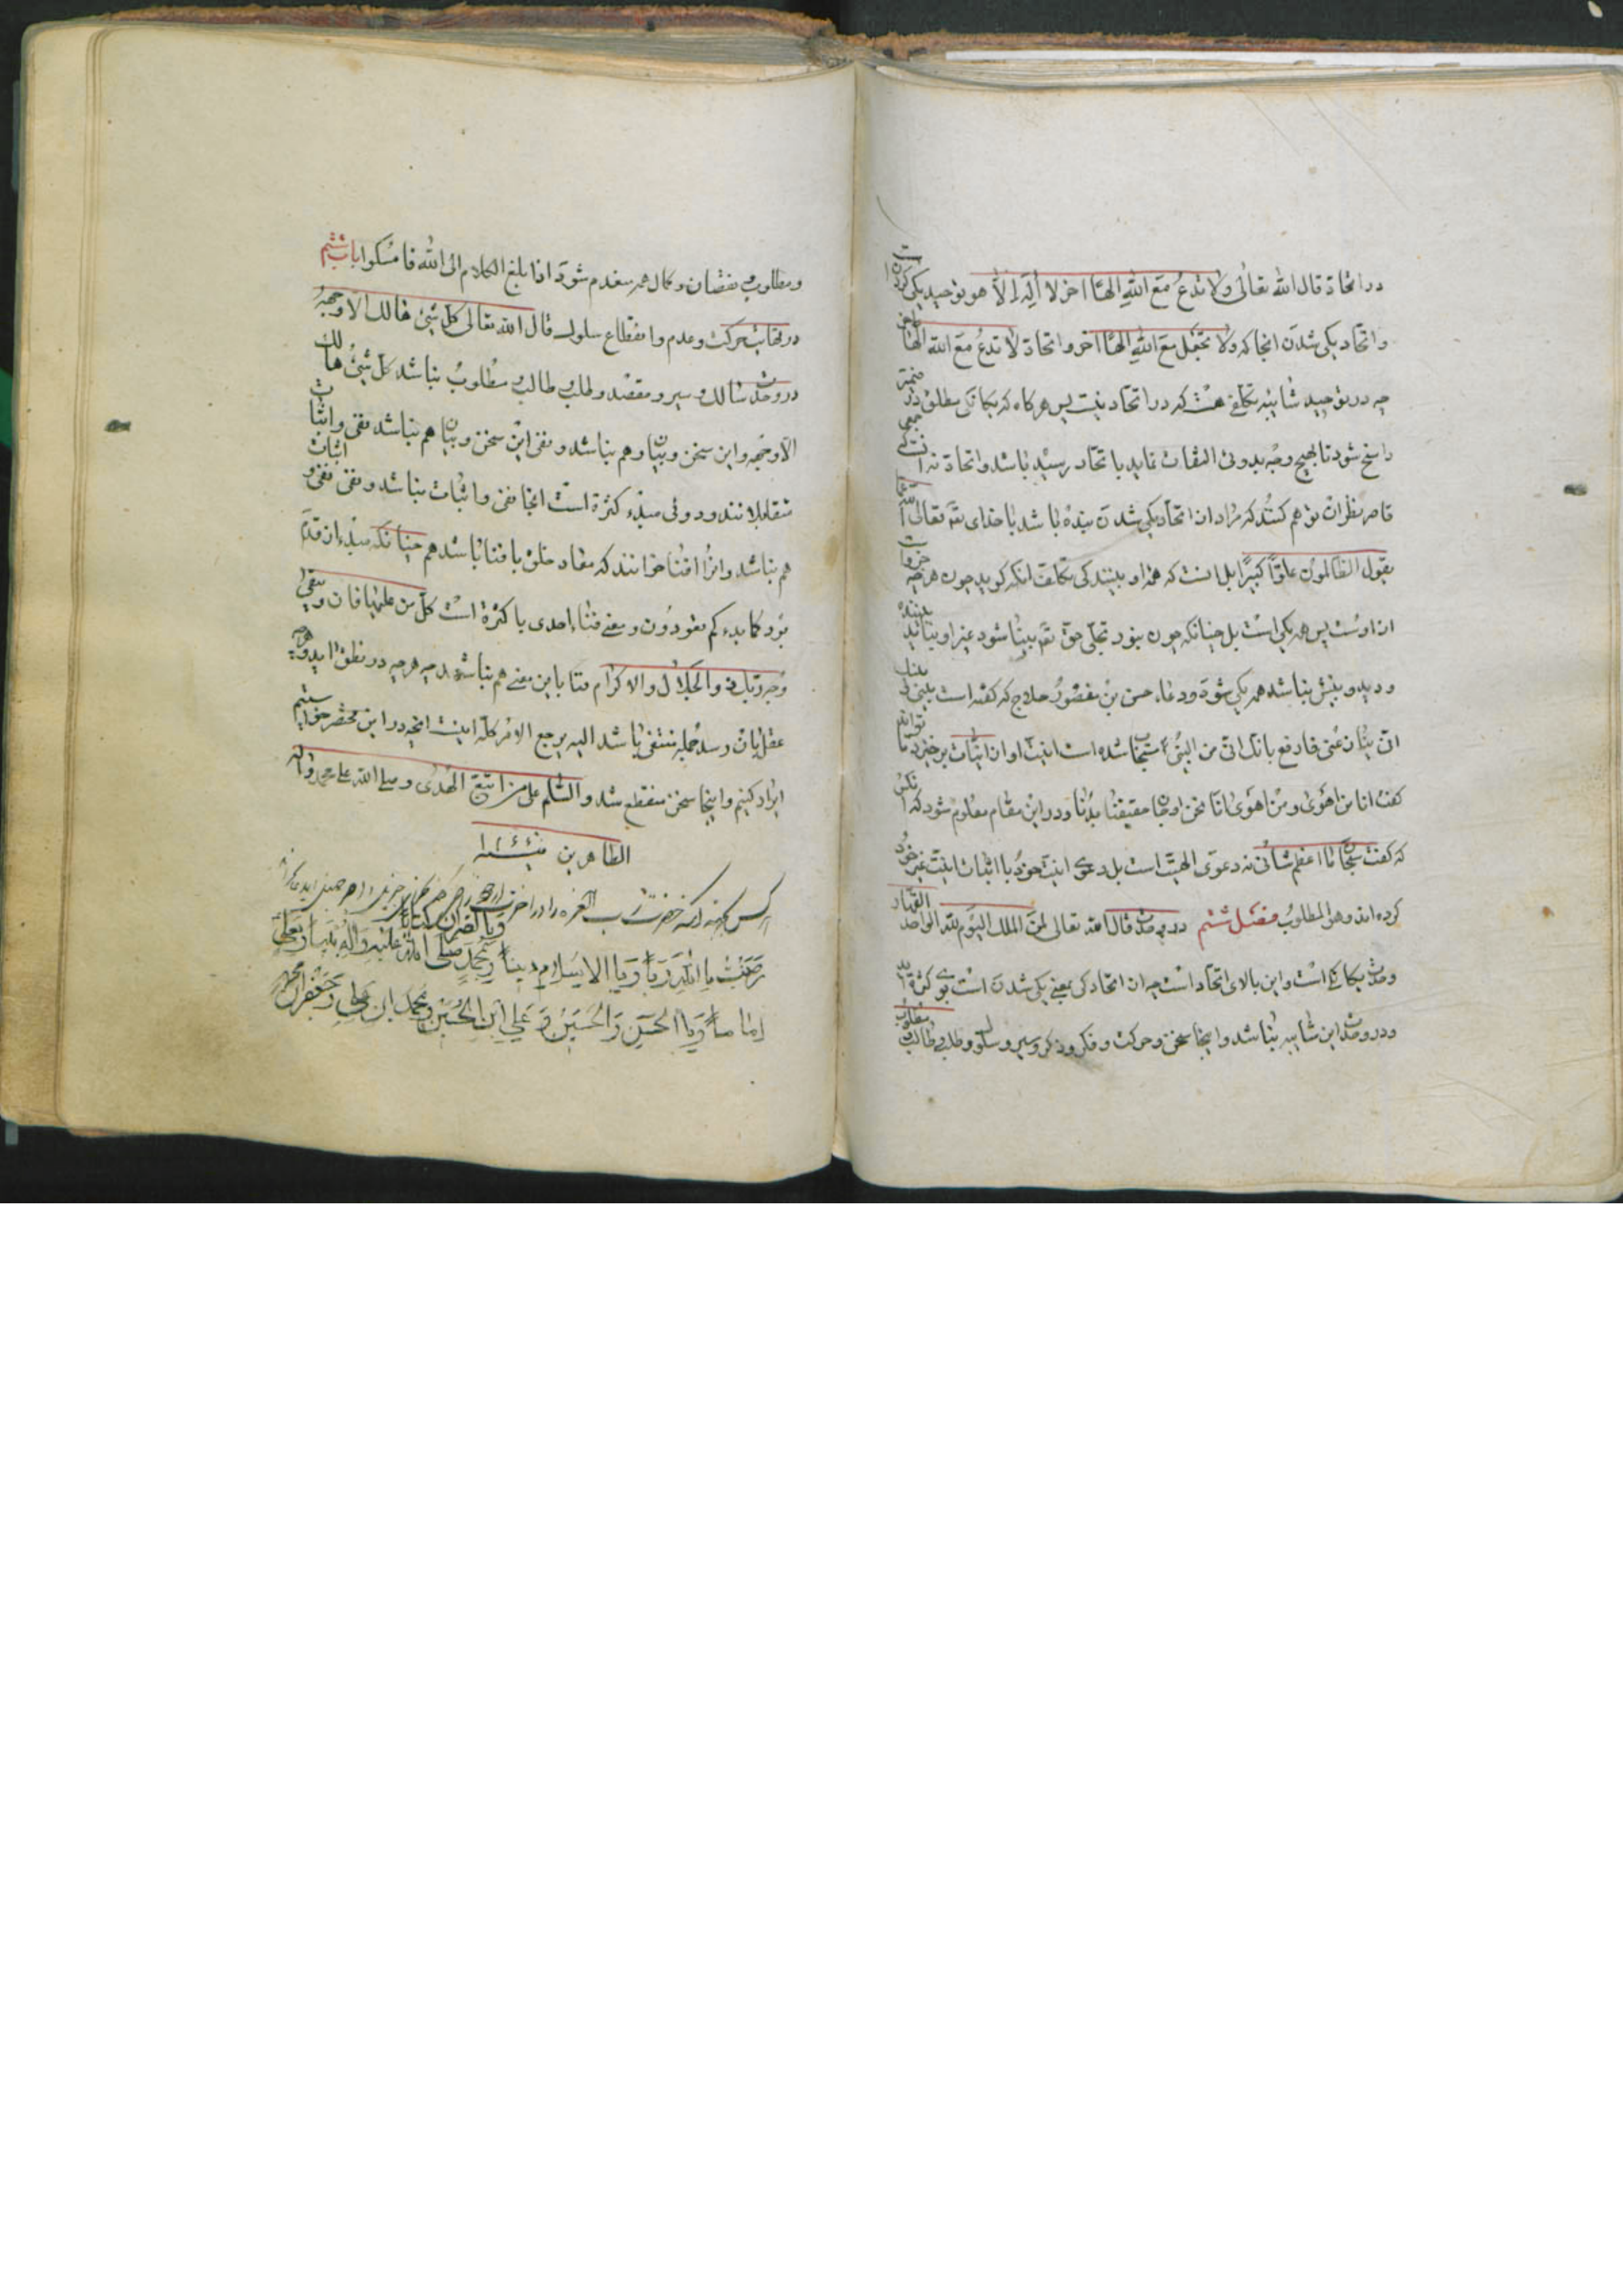 در اتحاد قال الله تعالی ولا تدع مع الله الهًا اخر لا اله الا هو توحید یکی کردن است
و اتحاد یکی شدن انجا که ولا تجعل مع الله الهًا اخر و اتحاد لا تدع مع الله الهًا اخر
چه در توحید شائبه تکلفی هست که در اتحاد نیست پس هر گاه که یکانکی مطلق شود و در ضمیر
راسخ شود تا بهیچ وجه بدوئی التفات ننماید باتحاد رسیده باشد و اتحاد نه انست که جمعی
قاصر نظران توهم کنند که مراد از اتحاد یکی شدن بنده باشد با خدای تعه تعالی الله عما
یقول الظالمون علوًا کبیرًا بل انست که همه او بینند بی تکلف انکه کوید چون هرچه جز وی است
از اوست پس همه یکی است بل چنانکه چون بنور تجلی حق تعه بینا شود غیر او نبیند بیننده
و دیده و بینش نباشد همه یکی شود و دعاء حسین بن منصور حلاج که کفته است بینی و بینک
انی ینازعنی فارفع بانک انی من البین مستجاب شده است انیت او از انیان برخیزد تا توانم
کفت انا من اهوی و من اهوی انا نحن روحان حقیقتنا بدنا و در این مقام معلوم شود که انکس
که کفت سبحانی ما اعظم شانی نه دعوی الهیت است بل دعوی انیت خود با اثبات انیت غیر خود
کرده اند و هو المطلوب فصل ششم در وحدت قال الله تعالی لمن الملک الیوم لله الواحد القهار
وحدت یکانکی است و این بالای اتحاد است چه از اتحاد که بمعنی یکی شدن است بوی کثرة اید
و در وحدت این شائبه نباشد و اینجا سخن و حرکت و فکر و ذکر و سیر و سلوک و طلب و طالب و مطلوب
و مطلوب نقصان و کمال همه منعدم شود اذا بلغ الکلام الی الله فامسکوا باب ششم
در نهایت حرکت و عدم و انقطاع سلوک قال الله تعالی کل شیئ هالک الا وجهه
در وحدت سالک و سیر و مقصد و طلب و طالب و مطلوب نباشد کل شیئ هالک
الا وجهه و این سخن و بیان هم نباشد و نفی این سخن و بیان هم نباشد نفی و اثبات
متقابلانند و دوئی مبدء کثرة است انجا نفی و اثبات نباشد و نفی نفی و اثبات
هم نباشد و انرا فنا خوانند که معاد خلق با فنا باشد همچنانکه مبدء از عدم
بود کما بدءکم تعودون و معنی فنا حدی با کثرة است کل من علیها فان و یبقی
وجه ربک ذو الجلال و الاکرام فنا باین معنی هم نباشد چه هرچه در نطق اید و هرچه
عقل بان رسد جمله منتفی باشد الیه یرجع الامر کله اینست انچه در این مختصر خواستیم
ایراد کنیم و اینجا سخن منقطع شد و السلم علی من اتبع الهدی و صلی الله علی محمد واله
الطاهرین
رضیت بالله ربًا و بالاسلام دینًا و بمحمد صلی الله علیه واله نبیا و بعلی
و بالقران کتابا
اماما و بالحسن والحسین و علی ابن الحسین و محمد ابن علی و جعفر ابن محمد